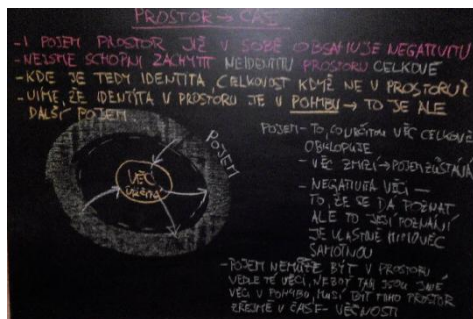 PROSTOR → ČAS
- I POJEM PROSTOR JIŽ V SOBĚ OBSAHUJE NEGATIVITU
- NEJSME SCHOPNI ZACHYTIT NEIDENTITU PROSTORU CELKOVĚ
- KDE JE TEDY IDENTITA, CELKOVOST KDYŽ NE V PROSTORU?
- VÍME, ŽE IDENTITA V PROSTORU JE V POHYBU → TO JE ALE
DALŠÍ POJEM
POJEM
VĚC
POJEM - TO, CO URČITOU VĚC CELKOVĚ
OBKLOPUJE
- VĚC ZMIZÍ → POJEM ZŮSTÁVÁ
- NEGATIVITA VĚCI —
TO, ŽE SE DÁ POZNAT
ALE TO JEJÍ POZNÁNÍ
JE VLASTNĚ MIMO VĚC
SAMOTNOU
- POJEM NEMŮŽE BÝT V PROSTORU
VEDLE TÉ VĚCI, NEBOŤ TAM JSOU JINÉ
VĚCI V POHYBU, MUSÍ BÝT MIMO PROSTOR
ZŘEJMĚ V ČASE - VĚČNOSTI